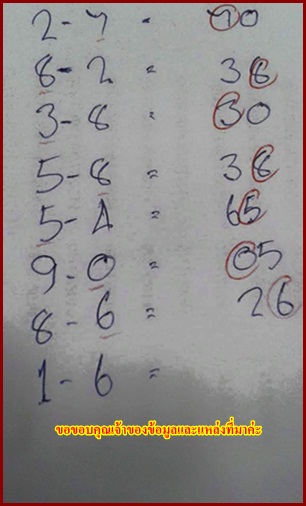 2-7 = 70
8-2 = 38
3-8 = 30
5-8 = 38
5-4 = 65
9-0 = 05
8-6 = 26
1-6 =
ขอขอบคุณเจ้าของข้อมูลและแหล่งที่มาค่ะ